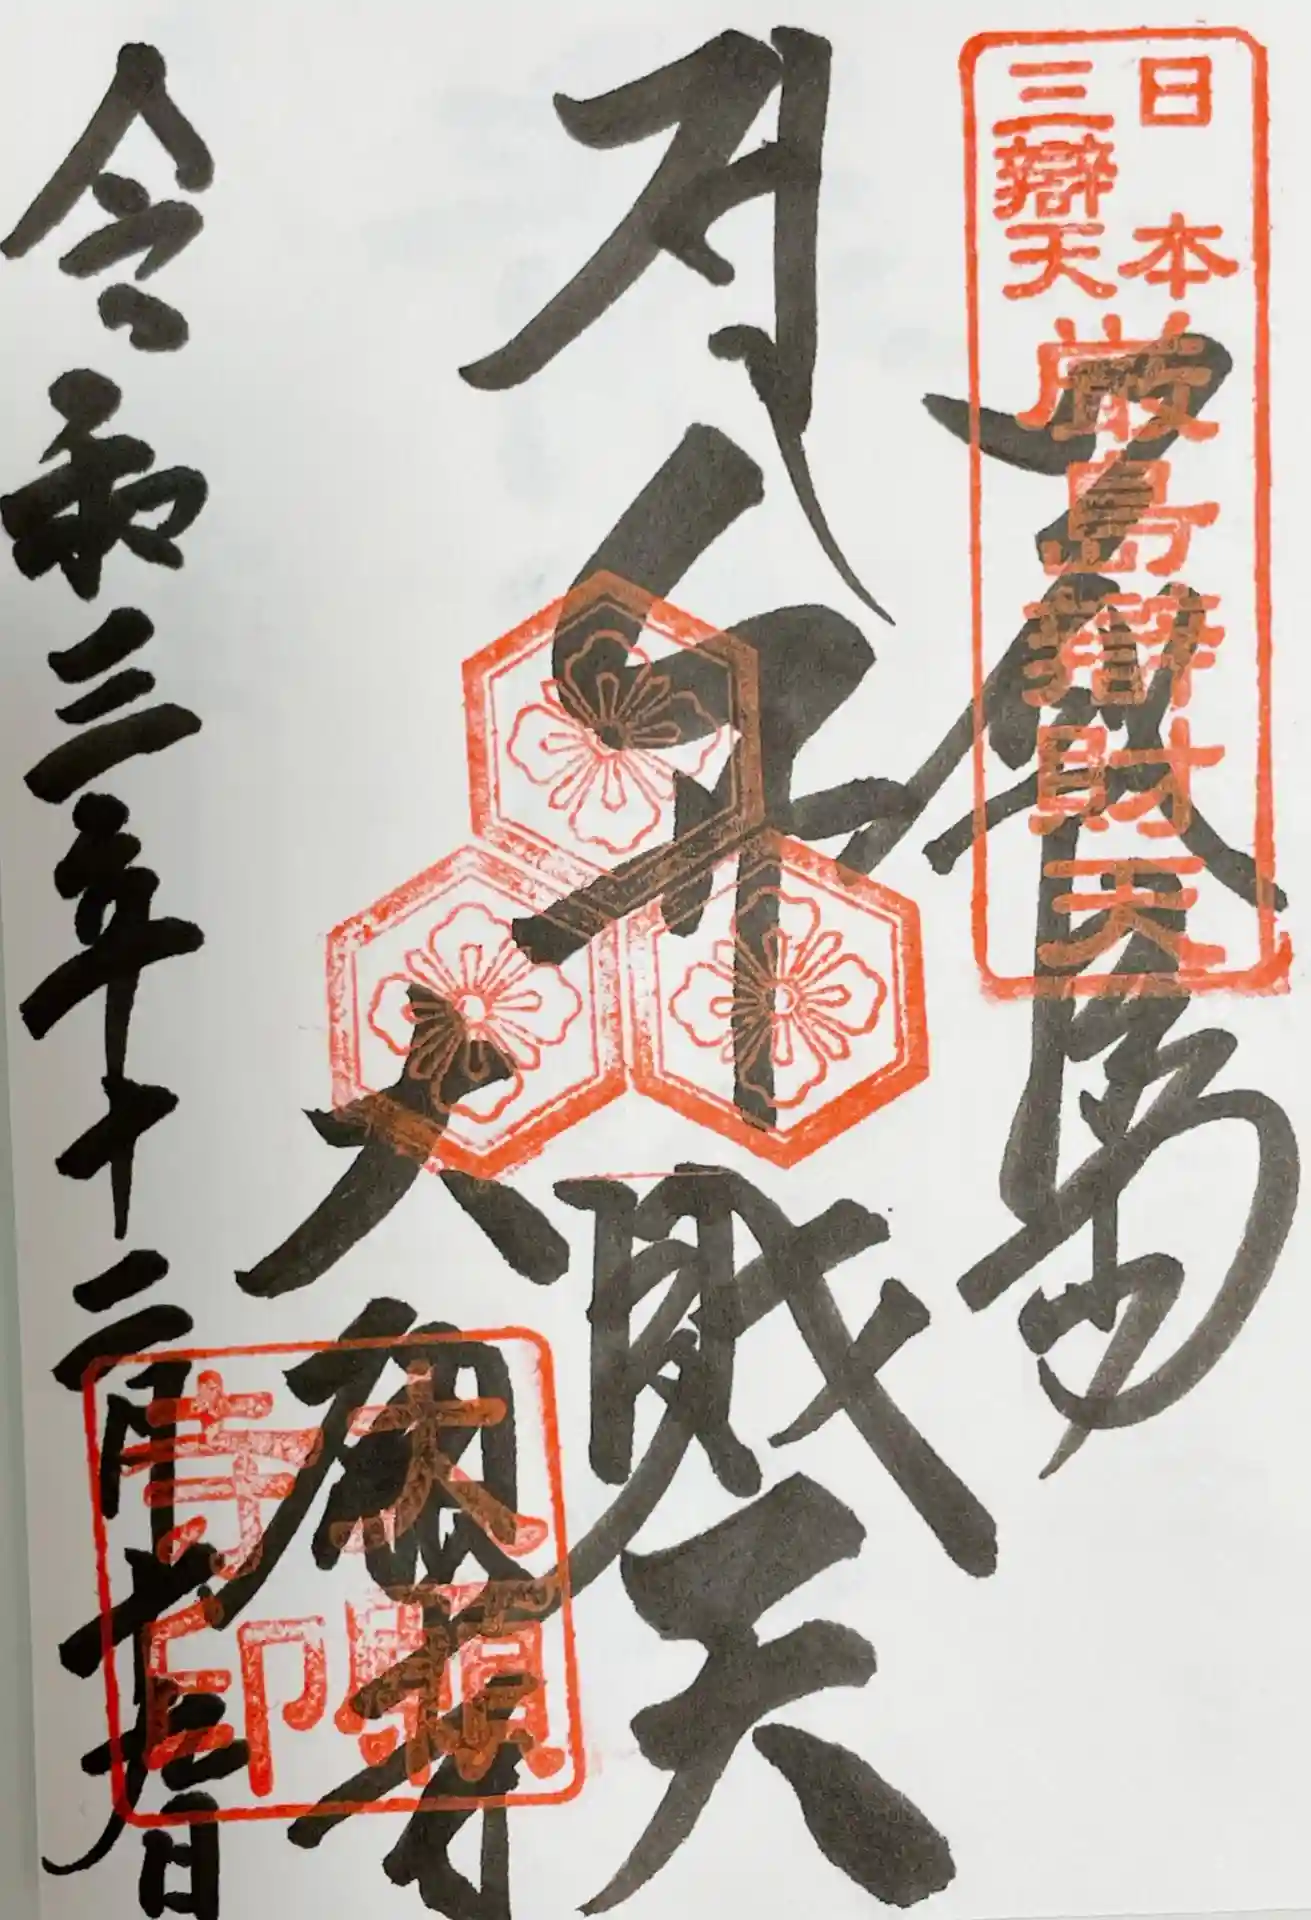 日本
三辯天
厳島辯財天
財天
大願寺
大願
寺印
令和三年十二月
日